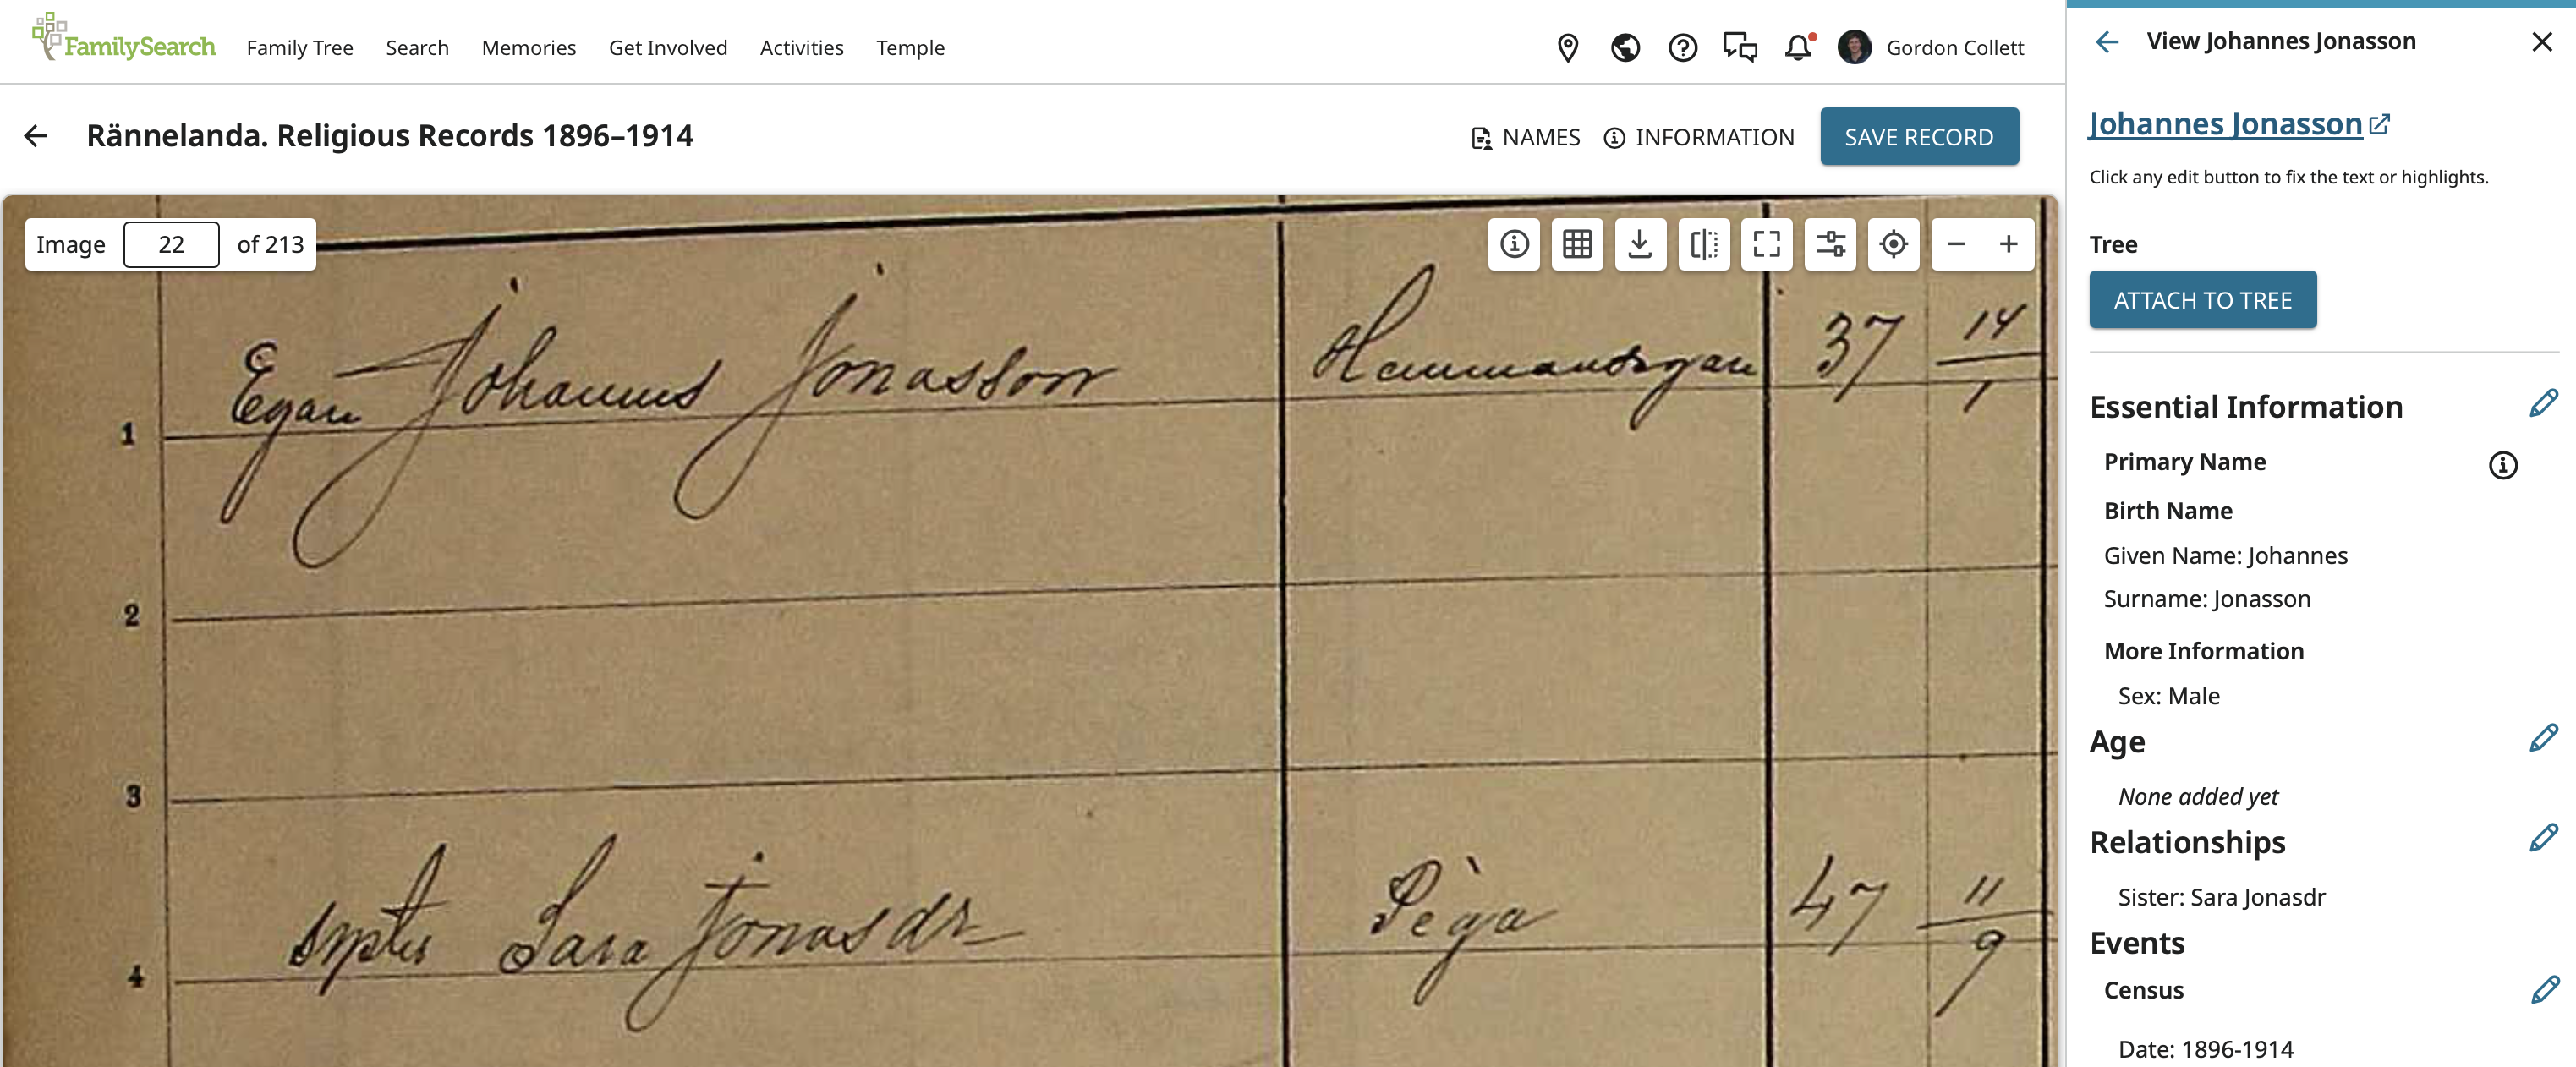 FamilySearch
Family Tree Search Memories Get Involved Activities Temple
Gordon Collett
Rännelanda. Religious Records 1896–1914
NAMES INFORMATION SAVE RECORD
Image 22 of 213
1 Egar Johannes Jonasson 37 14/1
2
3
4 Syster Sara Jonasdr 47 11/9
View Johannes Jonasson
Johannes Jonasson
Click any edit button to fix the text or highlights.
Tree
ATTACH TO TREE
Essential Information
Primary Name
Birth Name
Given Name: Johannes
Surname: Jonasson
More Information
Sex: Male
Age
None added yet
Relationships
Sister: Sara Jonasdr
Events
Census
Date: 1896-1914